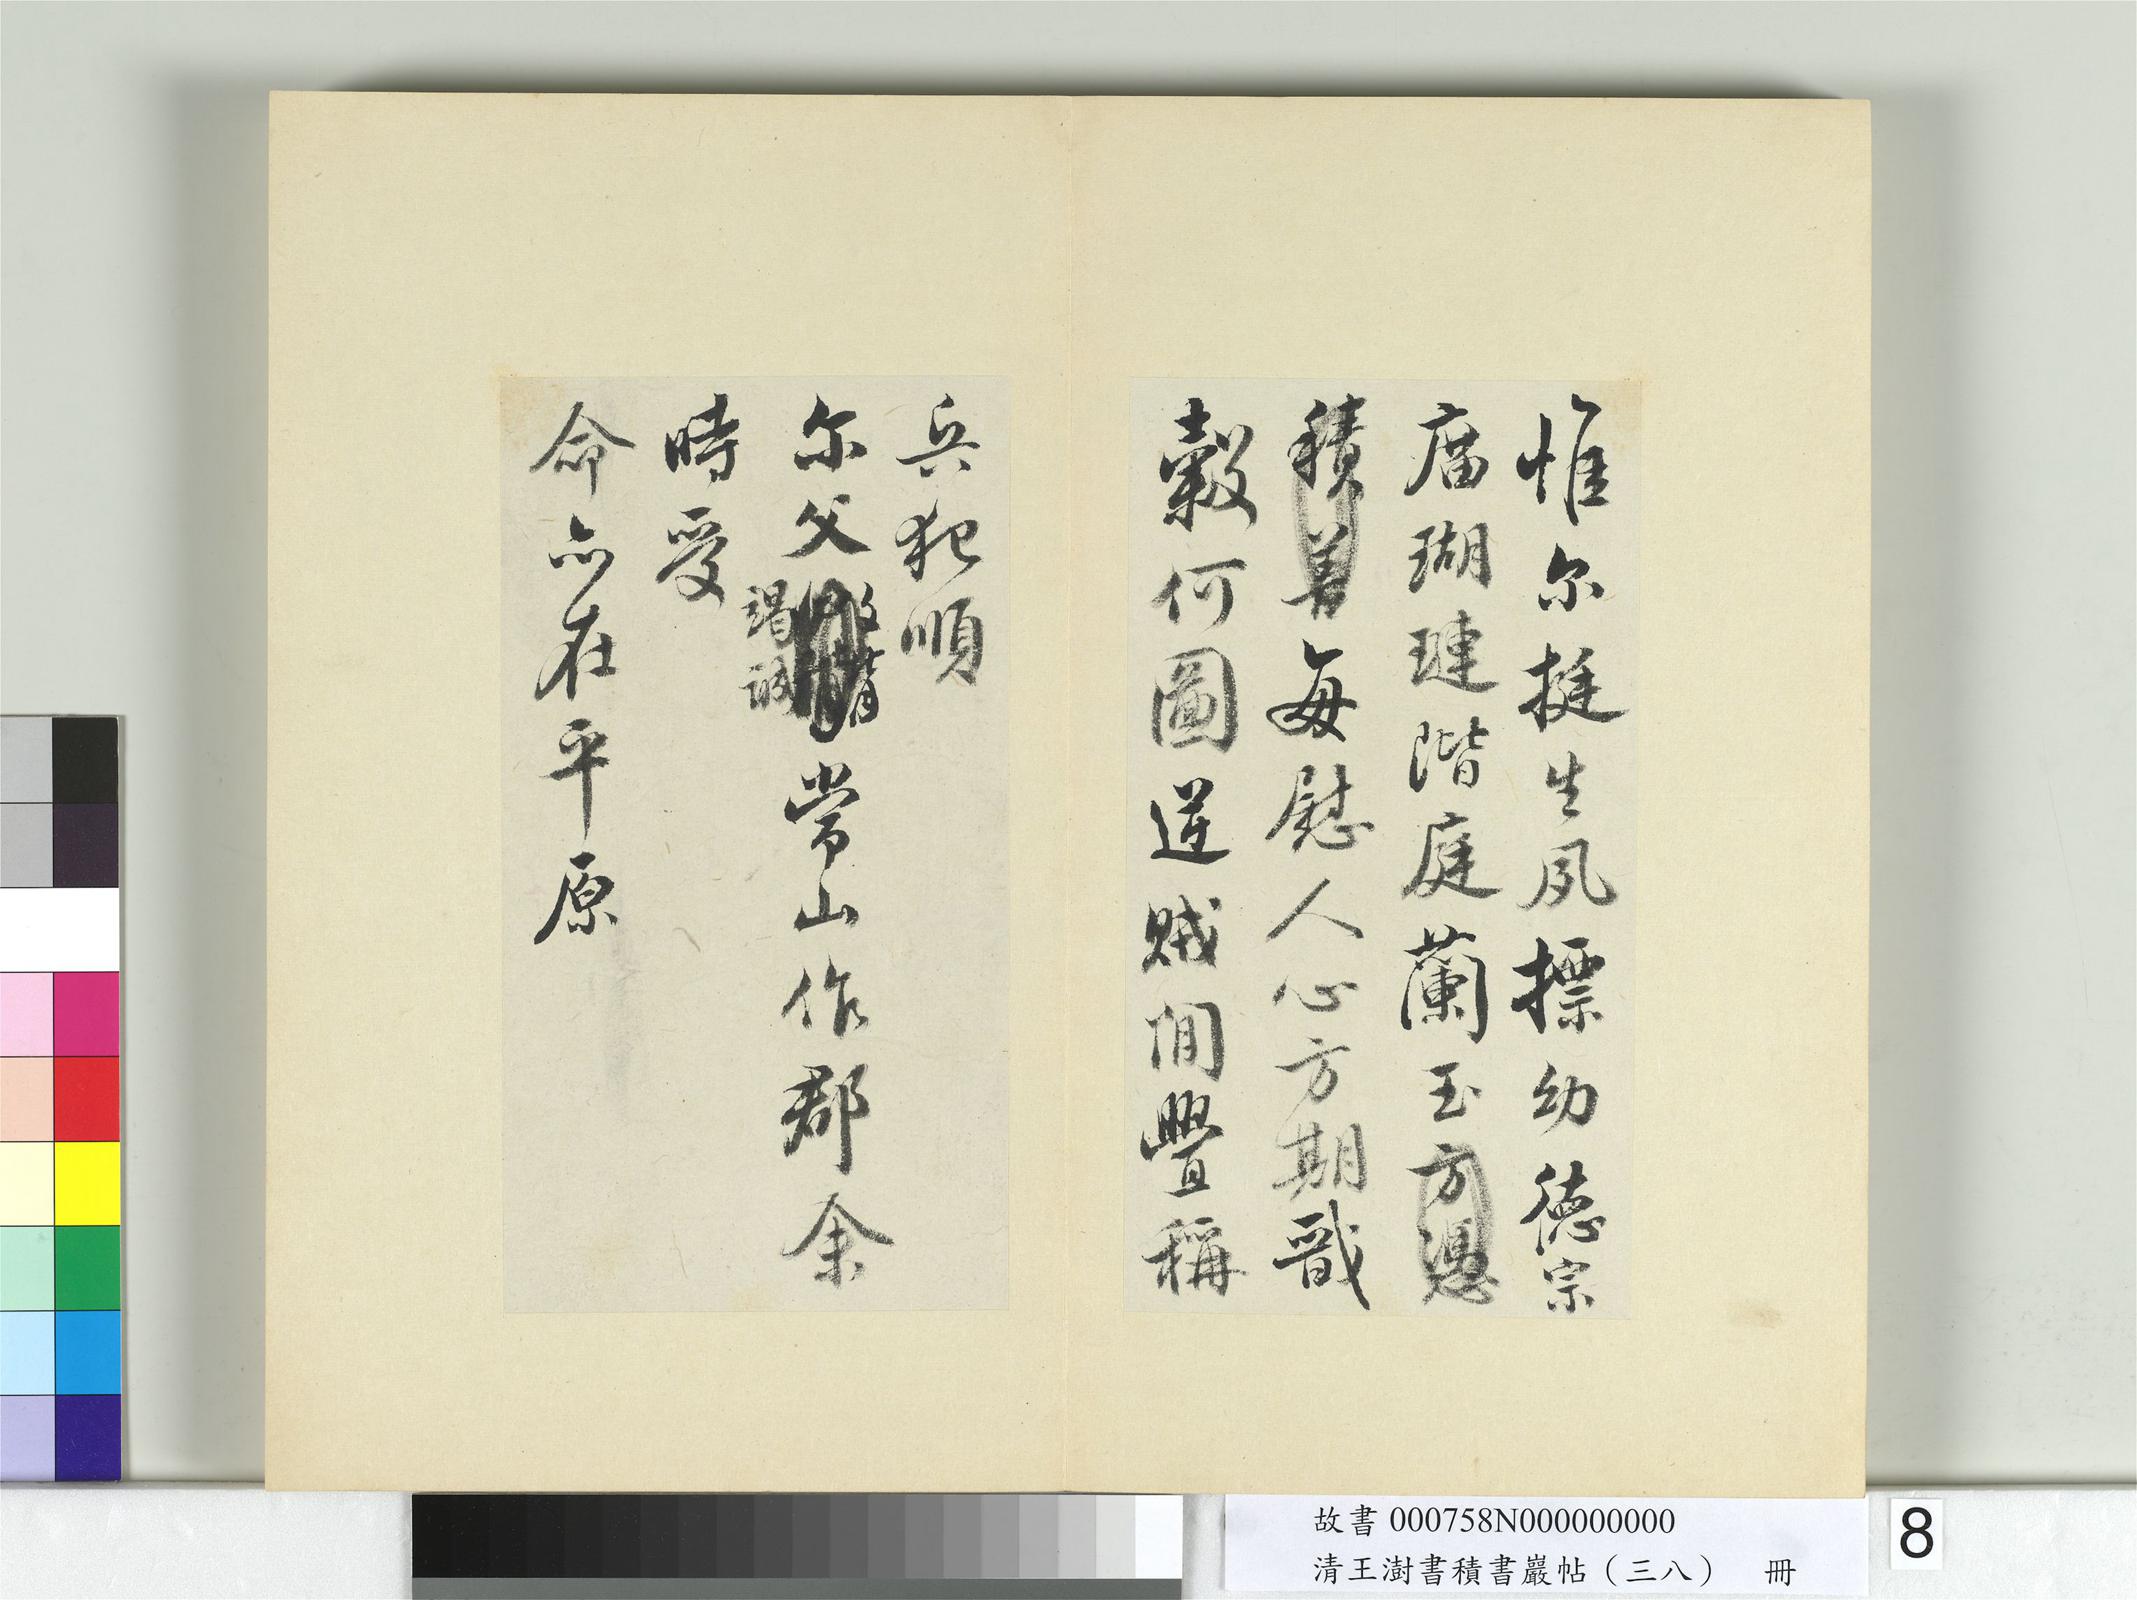 惟尔挺生夙標幼德宗
庿瑚璉階庭蘭玉方憑
積善每慰人心方期戩
穀何圖逆賊間釁稱
兵犯順
尔父
竭誠
常山作郡余
時受
命亦在平原
故書 000758N000000000
清王澍書積書巖帖（三八） 冊
8